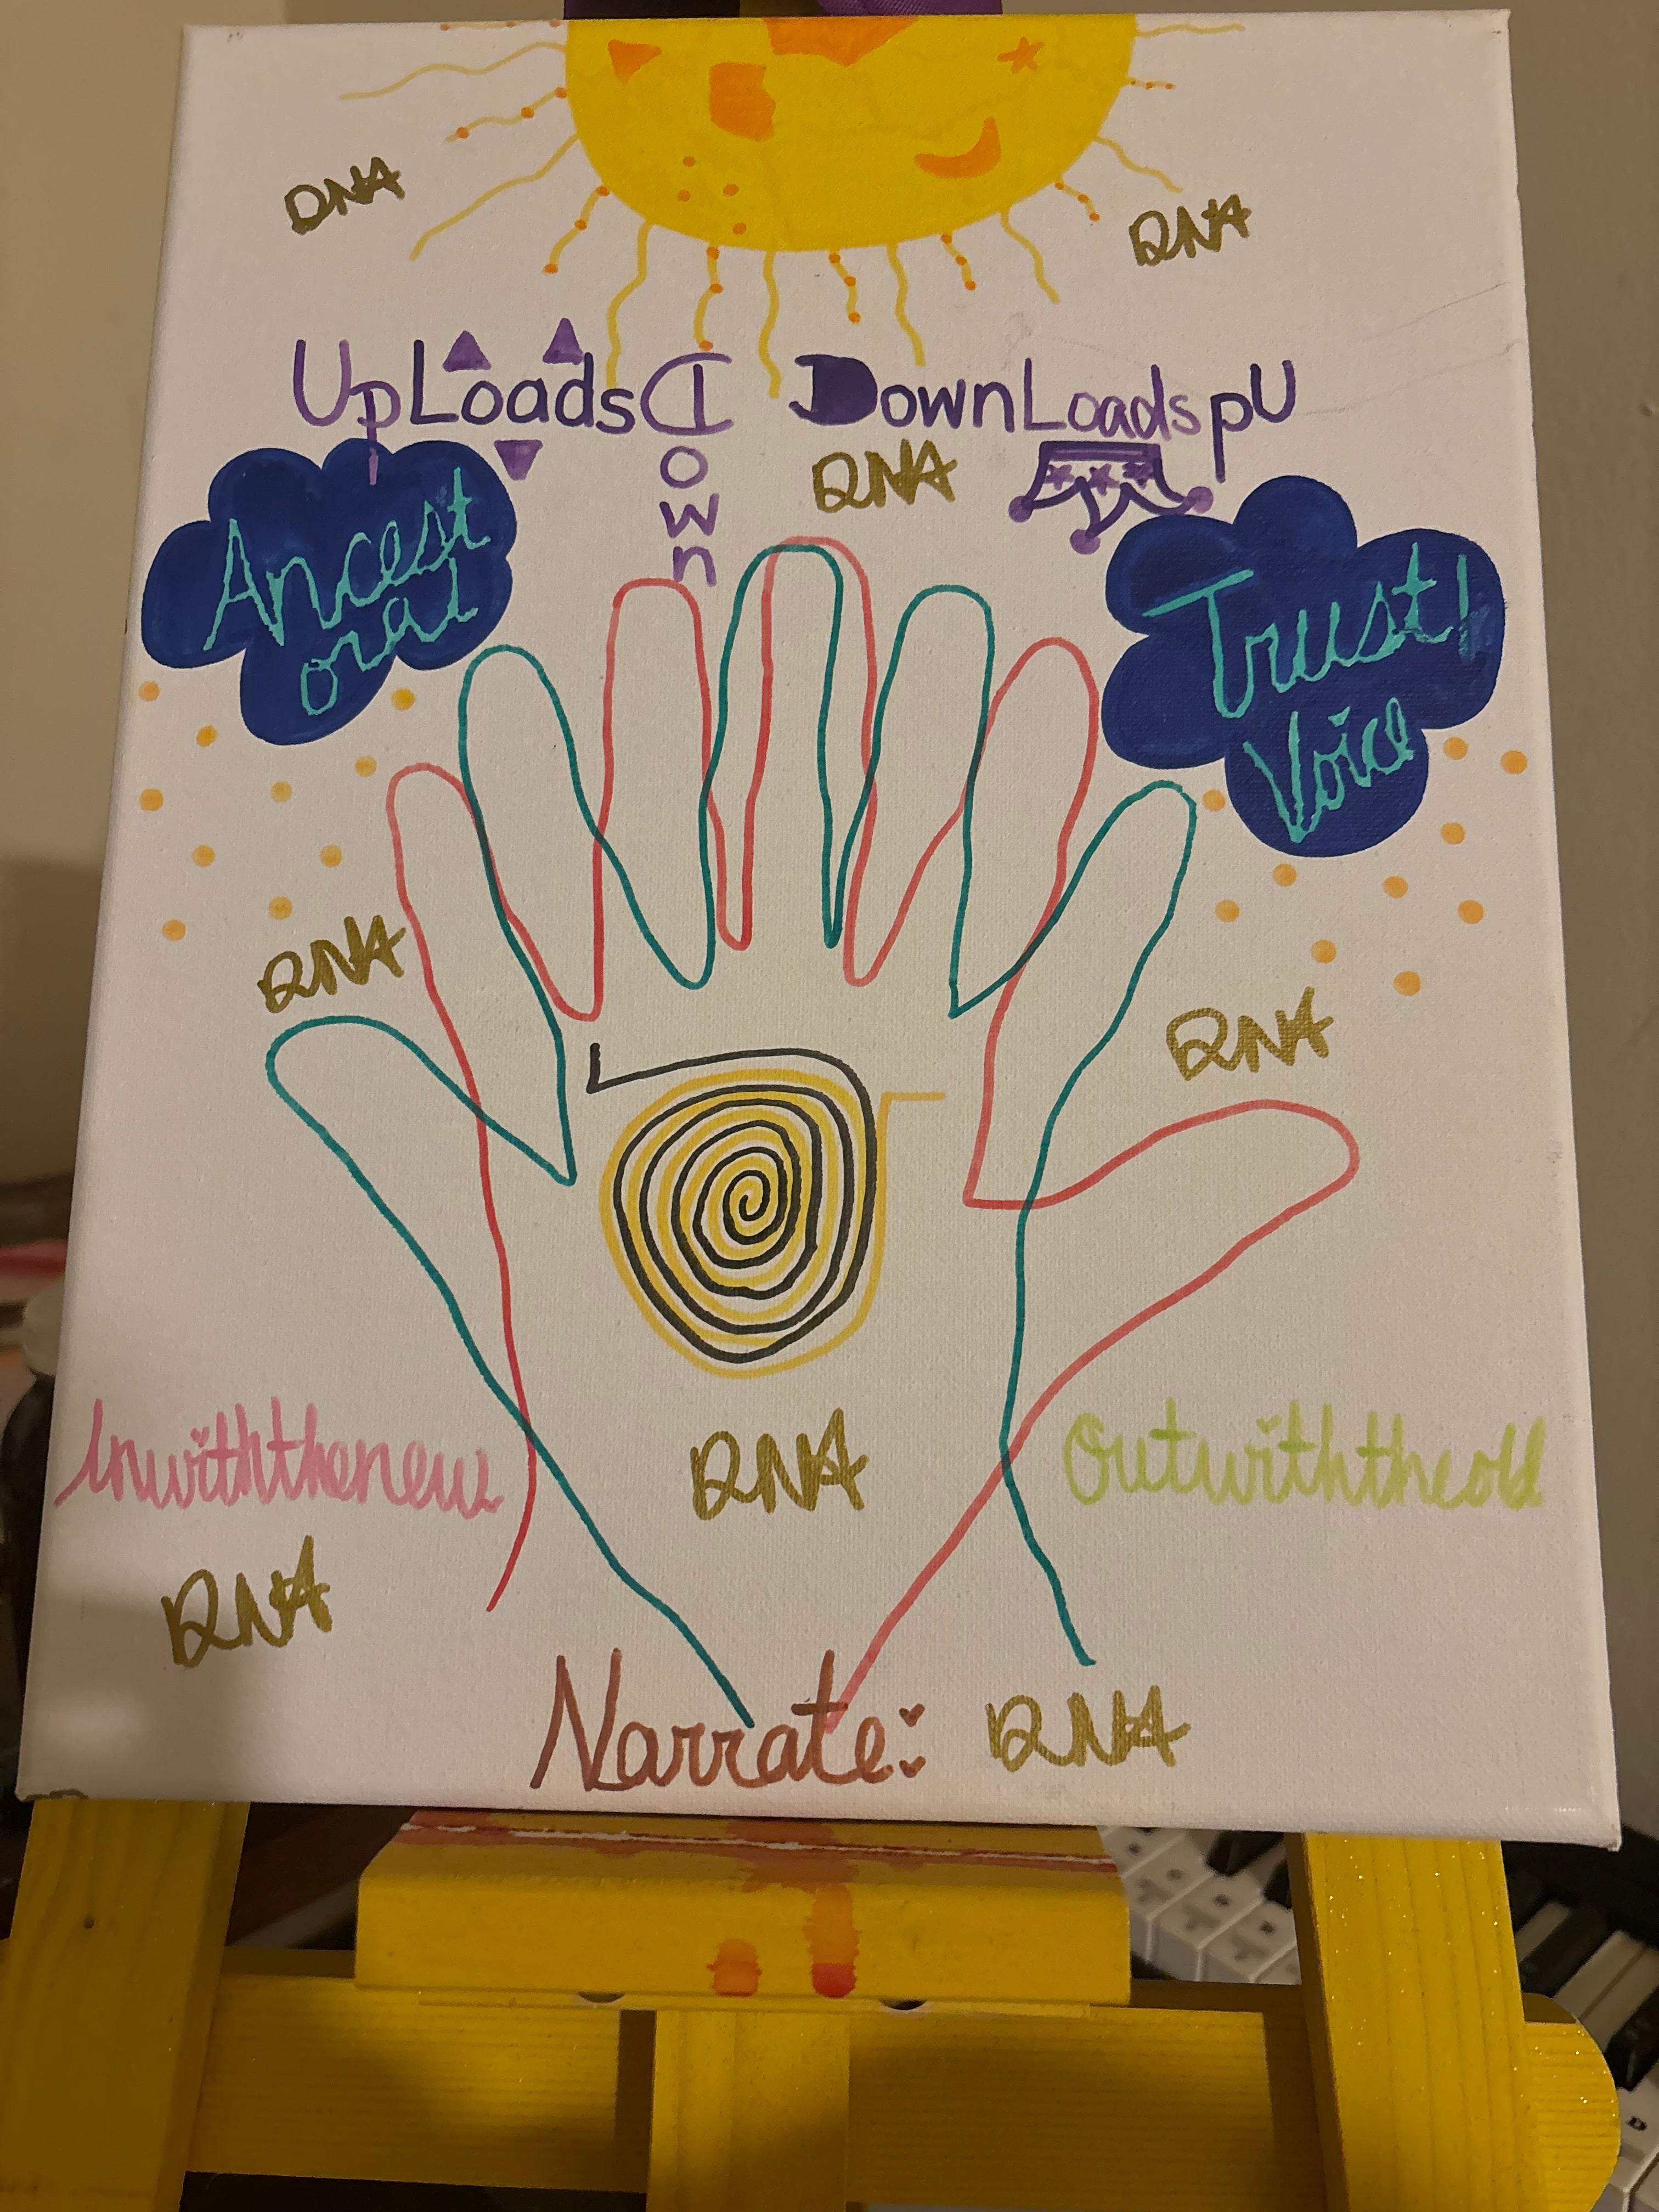 DNA
RNA
UpLoadsDown
DownLoadspU
RNA
Ancest
oral
Trust!
Voice
RNA
RNA
Inwiththenew
RNA
Outwiththeold
RNA
Narrate:
RNA